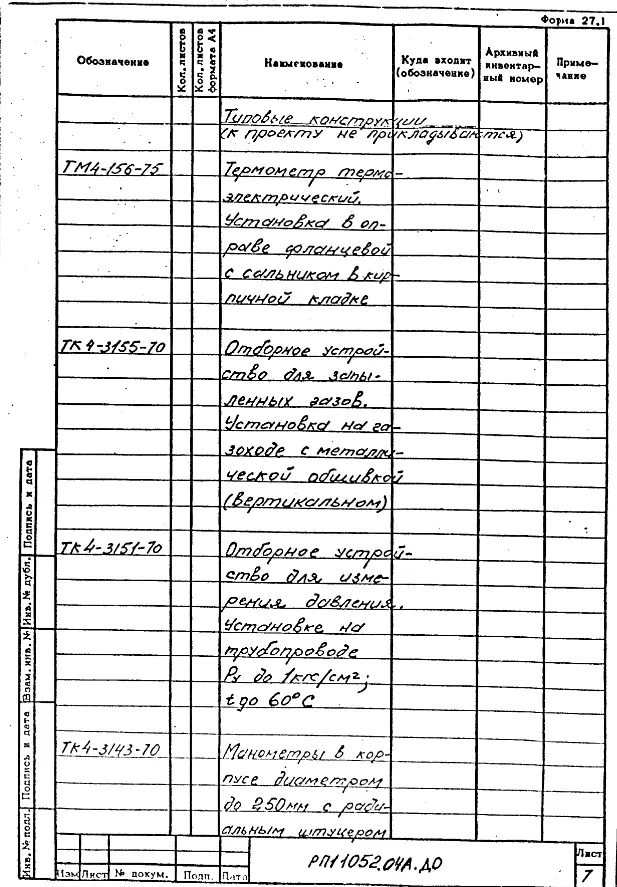 Форма 27.1
Обозначение
Кол. листов
Кол. листов формата А4
Наименование
Куда входит (обозначение)
Архивный инвентар-
ный номер
Приме-
чание
Типовые конструкции
(к проекту не прикладываются)
ТМ4-156-75 Термометр термо-
электрический.
Установка в оп-
раве фланцевой
с сальником в кир-
пичной кладке
ТК4-3155-70 Отборное устрой-
ство для запы-
ленных газов.
Установка на га-
зоходе с металли-
ческой обшивкой
(вертикальном)
ТК4-3151-70 Отборное устрой-
ство для изме-
рения давления.
Установке на
трубопроводе
Ру до 1кгс/см²;
t до 60°С
ТК4-3143-70 Манометры в кор-
пусе диаметром
до 250мм с ради-
альным штуцером
Инв. № подл. Подпись и дата Взам. инв. № Инв. № дубл. Подпись и дата
Изм Лист № докум. Подп. Дата
РП11052.04А.Д0
Лист
7